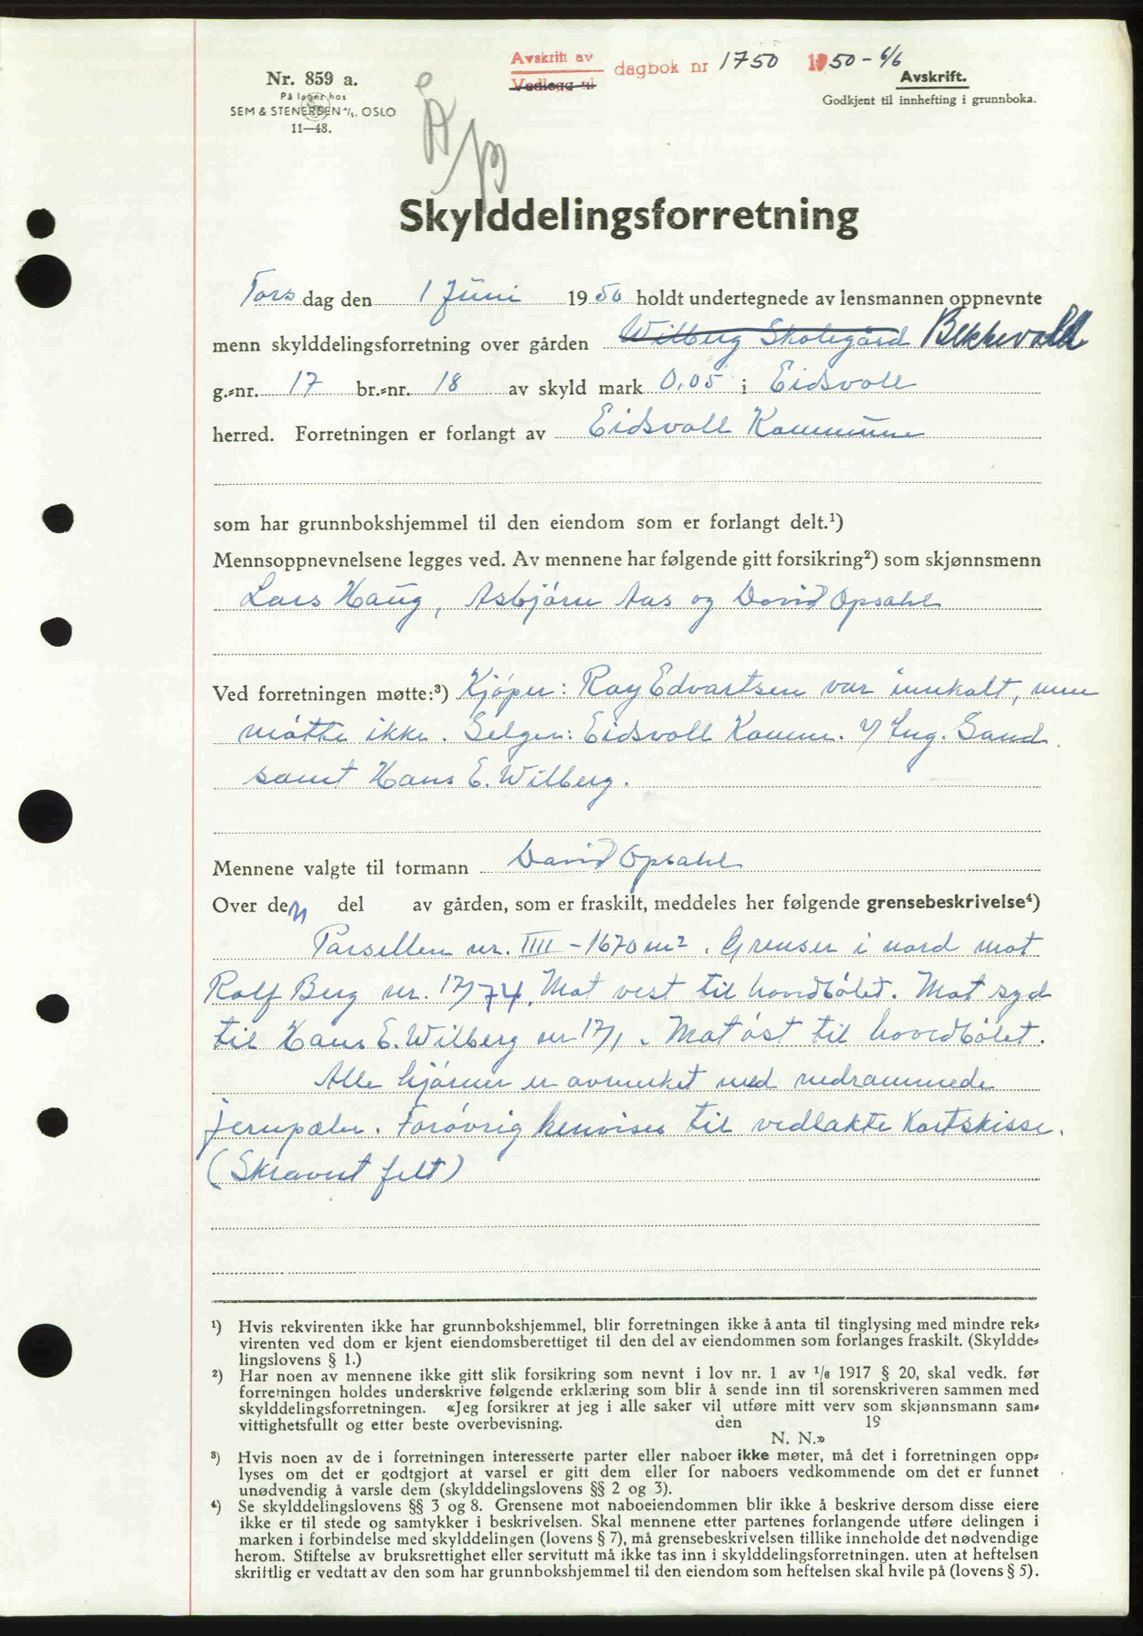 Avskrift av
Vedlegg til
dagbok nr 1750 1950 - 6/6
Nr. 859 a.
På lager hos
SEM & STENERSEN A/S. OSLO
11—48.
Avskrift.
Godkjent til innhefting i grunnboka.
Skylddelingsforretning
Tors dag den 1 Juni 1950 holdt undertegnede av lensmannen oppnevnte
menn skylddelingsforretning over gården Wilberg Skolegård Bekkevold
g.-nr. 17 br.-nr. 18 av skyld mark 0,05 i Eidsvoll
herred. Forretningen er forlangt av Eidsvoll Kommune
som har grunnbokshjemmel til den eiendom som er forlangt delt.¹)
Mennsoppnevnelsene legges ved. Av mennene har følgende gitt forsikring²) som skjønnsmenn
Lars Haug, Asbjørn Aas og David Opsahl
Ved forretningen møtte:³) Kjøper: Ray Edvartsen var innkalt, men
møtte ikke. Selger: Eidsvoll Komm. v/ Ing. Sand
samt Hans E. Wilberg.
Mennene valgte til formann David Opsahl
Over den del av gården, som er fraskilt, meddeles her følgende grensebeskrivelse⁴)
Parsellen nr. IIII - 1670 m². Grenser i nord mot
Rolf Berg nr. 17/74. Mot vest til hovedbølet. Mot syd
til Hans E. Wilberg nr 17/1. Mot øst til hovedbølet.
Alle hjørner er avmerket med nedrammede
jernpæler. Forøvrig henvises til vedlakte Kartskisse.
(Skravert felt)
¹) Hvis rekvirenten ikke har grunnbokshjemmel, blir forretningen ikke å anta til tinglysing med mindre rek-
virenten ved dom er kjent eiendomsberettiget til den del av eiendommen som forlanges fraskilt. (Skyldde-
lingslovens § 1.)
²) Har noen av mennene ikke gitt slik forsikring som nevnt i lov nr. 1 av 1/6 1917 § 20, skal vedk. før
forretningen holdes underskrive følgende erklæring som blir å sende inn til sorenskriveren sammen med
skylddelingsforretningen. «Jeg forsikrer at jeg i alle saker vil utføre mitt verv som skjønnsmann sam-
vittighetsfullt og etter beste overbevisning. den 19
N. N.»
³) Hvis noen av de i forretningen interesserte parter eller naboer ikke møter, må det i forretningen opp-
lyses om det er godtgjort at varsel er gitt dem eller for naboers vedkommende om det er funnet
unødvendig å varsle dem (skylddelingslovens §§ 2 og 3).
⁴) Se skylddelingslovens §§ 3 og 8. Grensene mot naboeiendommen blir ikke å beskrive dersom disse eiere
ikke er til stede og samtykker i beskrivelsen. Skal mennene etter partenes forlangende utføre delingen i
marken i forbindelse med skylddelingen (lovens § 7), må grensebeskrivelsen tillike inneholde det nødvendige
herom. Stiftelse av bruksrettighet eller servitutt må ikke tas inn i skylddelingsforretningen, uten at heftelsen
skriftlig er vedtatt av den som har grunnbokshjemmel til den eiendom som heftelsen skal hvile på (lovens § 5).